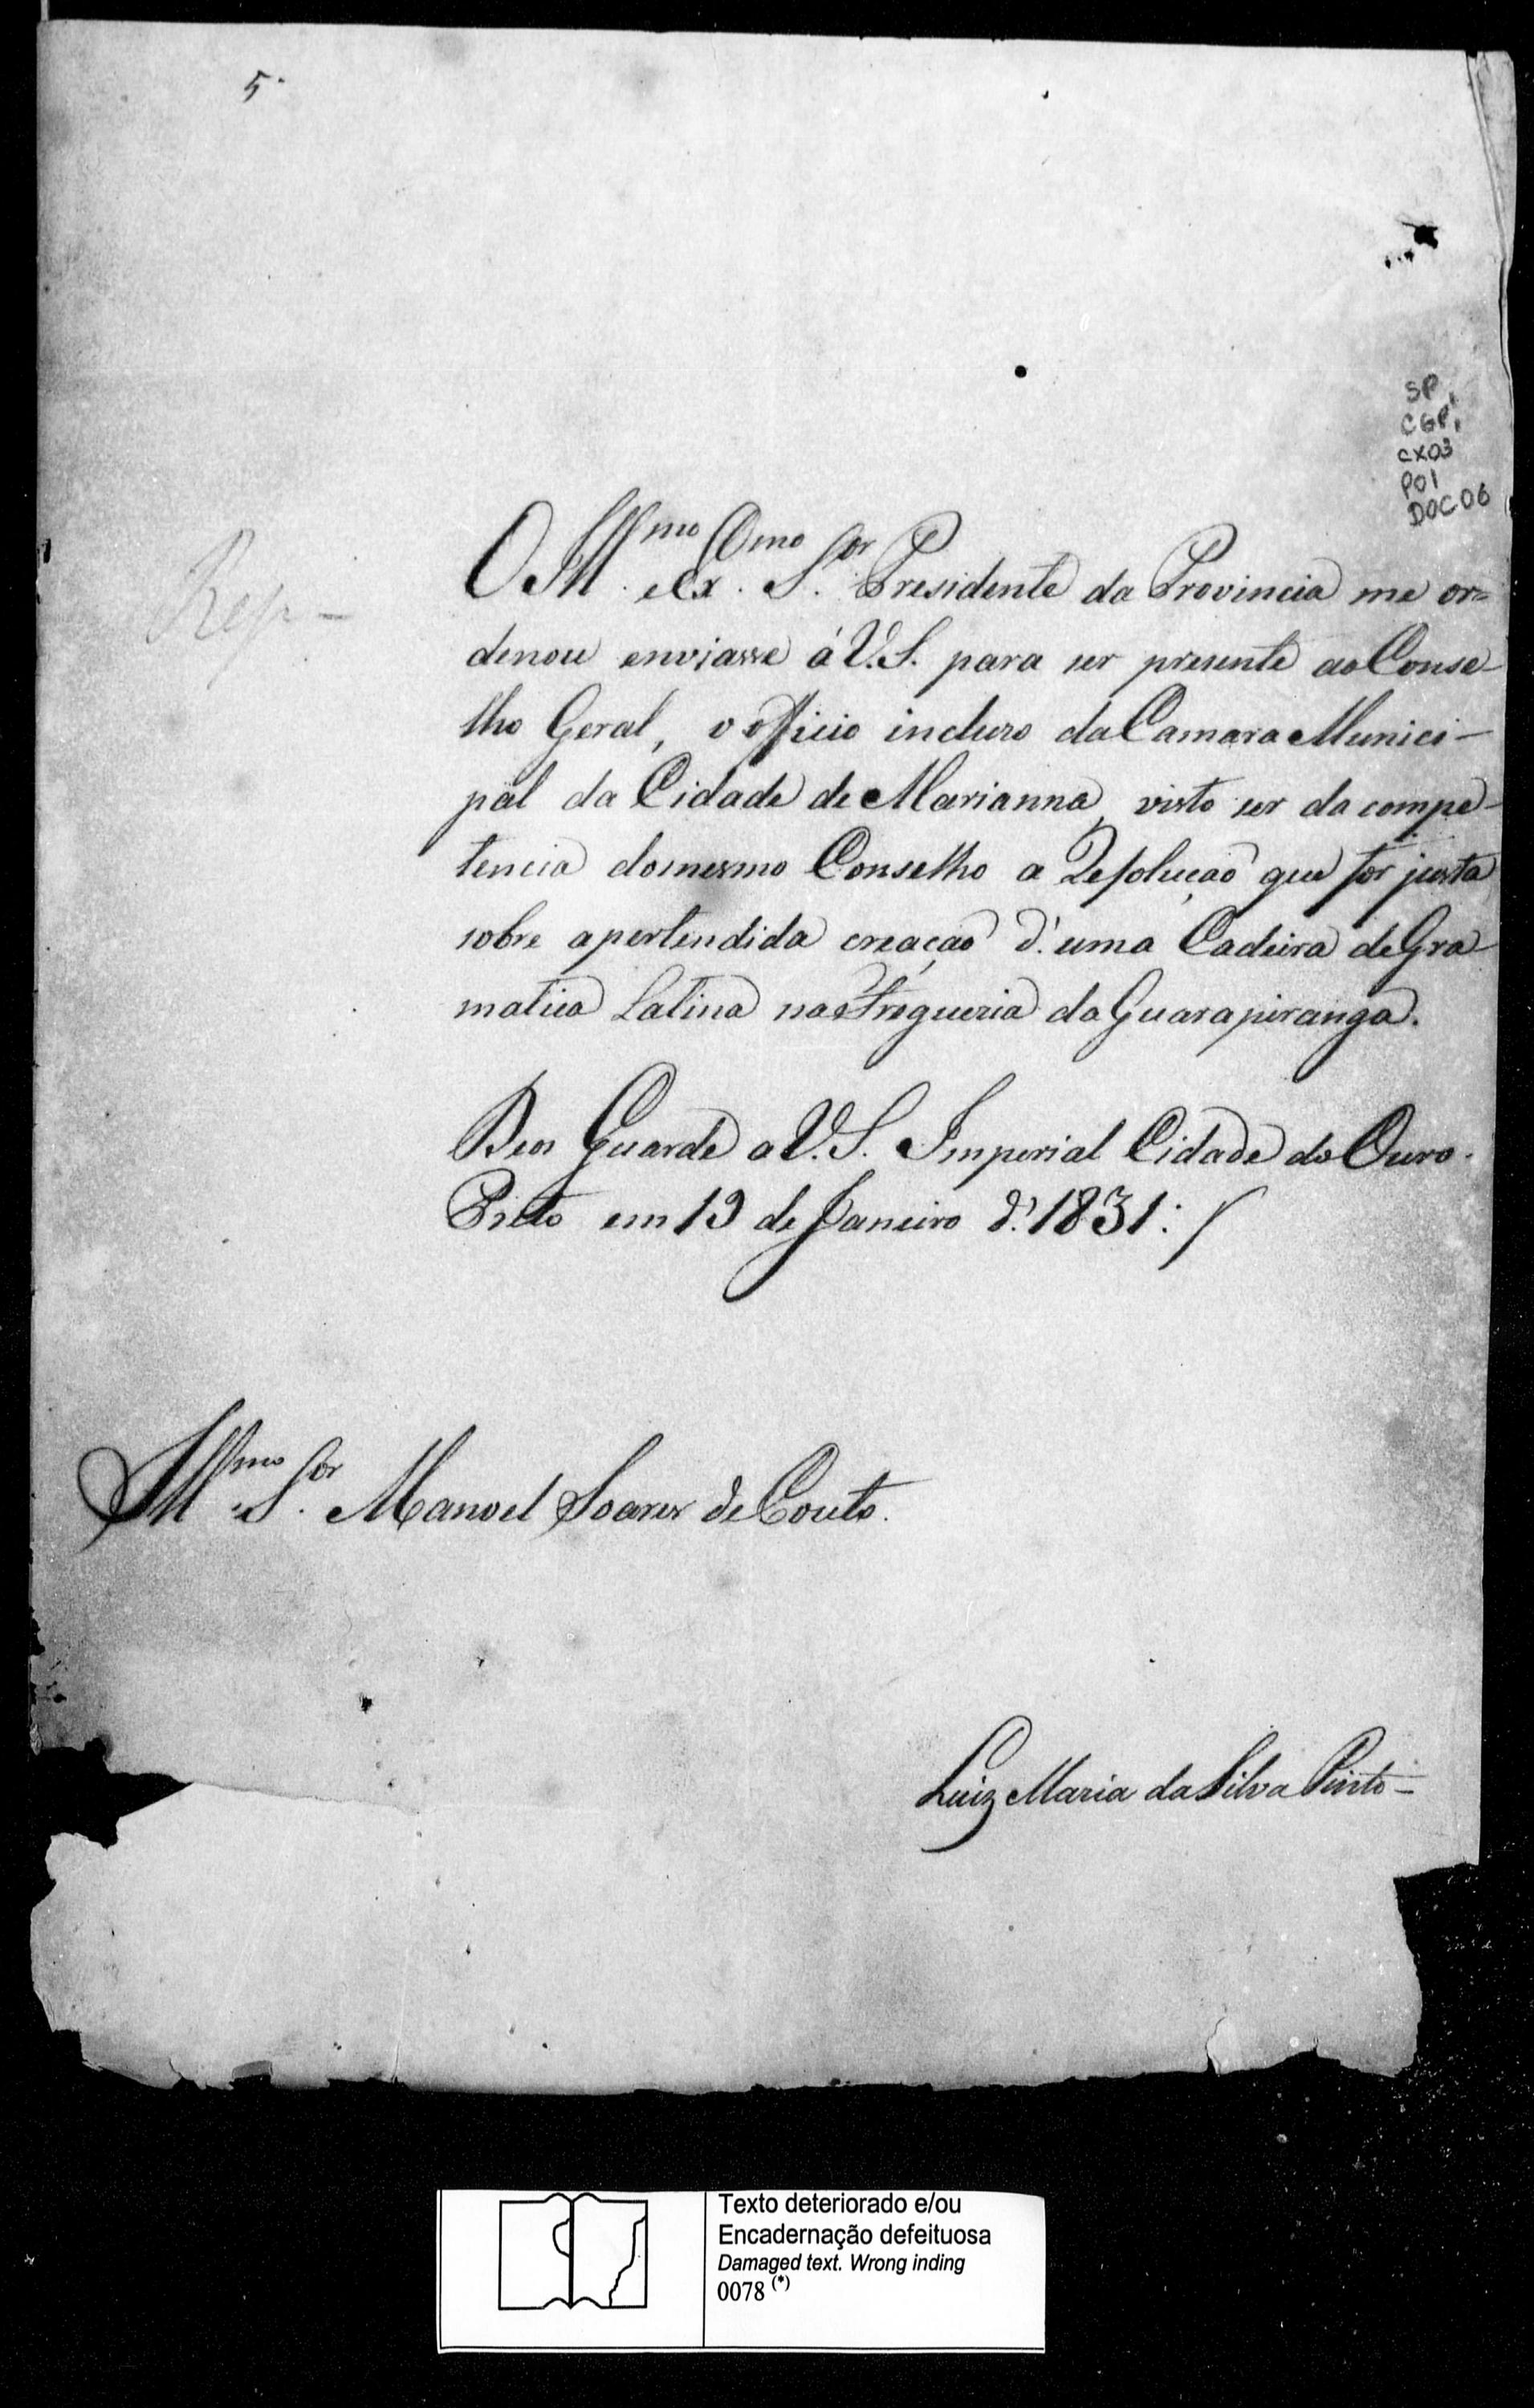 5.
SP
CGP1
CX03
P01
DOC06
O Ill.mo e Ex.mo S.or Presidente da Provincia me or=
denou enviasse á V.S. para ser presente ao Conse-
lho Geral, o officio incluso da Camara Munici-
pal da Cidade de Marianna, visto ser da compe-
tencia do mesmo Conselho a Resolução que for justa
sobre a pertendida creação d'uma Cadeira de Gra-
matica Latina na Freguezia da Guarapiranga.
Deos Guarde a V.S. Imperial Cidade do Ouro-
Preto em 19 de Janeiro d'1831:/
Ill.mo S.or Manoel Soares de Couto.
Luiz Maria da Silva Pinto-
Texto deteriorado e/ou
Encadernação defeituosa
Damaged text. Wrong inding
0078 (*)